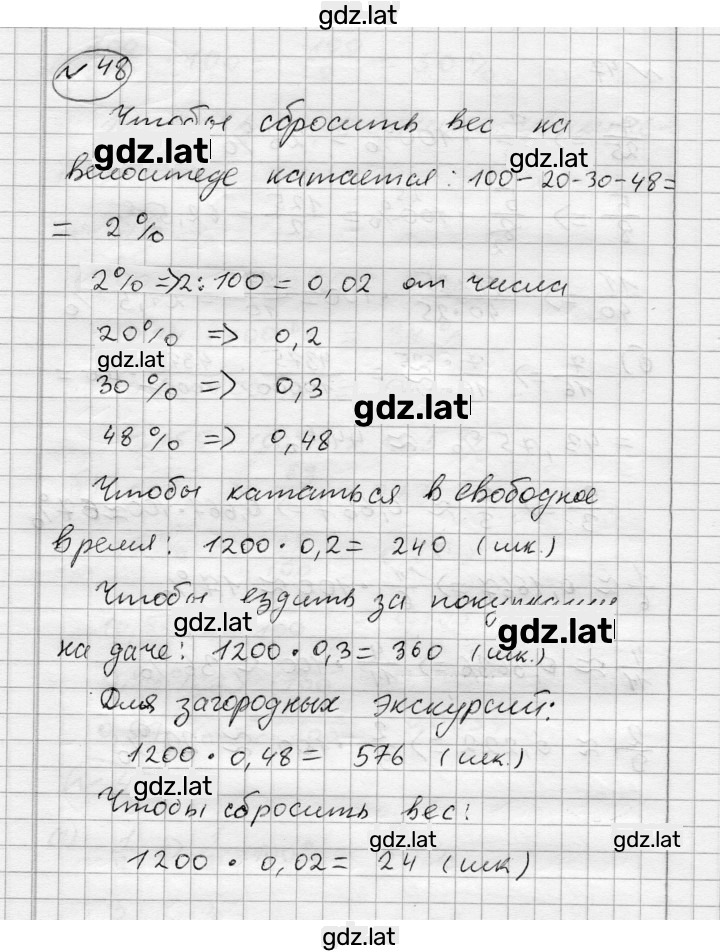 gdz.lat
№ 48
Чтобы сбросить вес на
gdz.lat
gdz.lat
велосипеде катается: 100-20-30-48=
= 2%
2% => 2:100 = 0,02 от числа
20% => 0,2
gdz.lat
30% => 0,3
gdz.lat
48% => 0,48
Чтобы кататься в свободное
время: 1200 · 0,2 = 240 (шк.)
Чтобы ездить за покупками
gdz.lat
gdz.lat
на даче: 1200 · 0,3 = 360 (шк.)
Для загородных экскурсий:
1200 · 0,48 = 576 (шк.)
gdz.lat
Чтобы сбросить вес:
gdz.lat
gdz.lat
1200 · 0,02 = 24 (шк)
gdz.lat